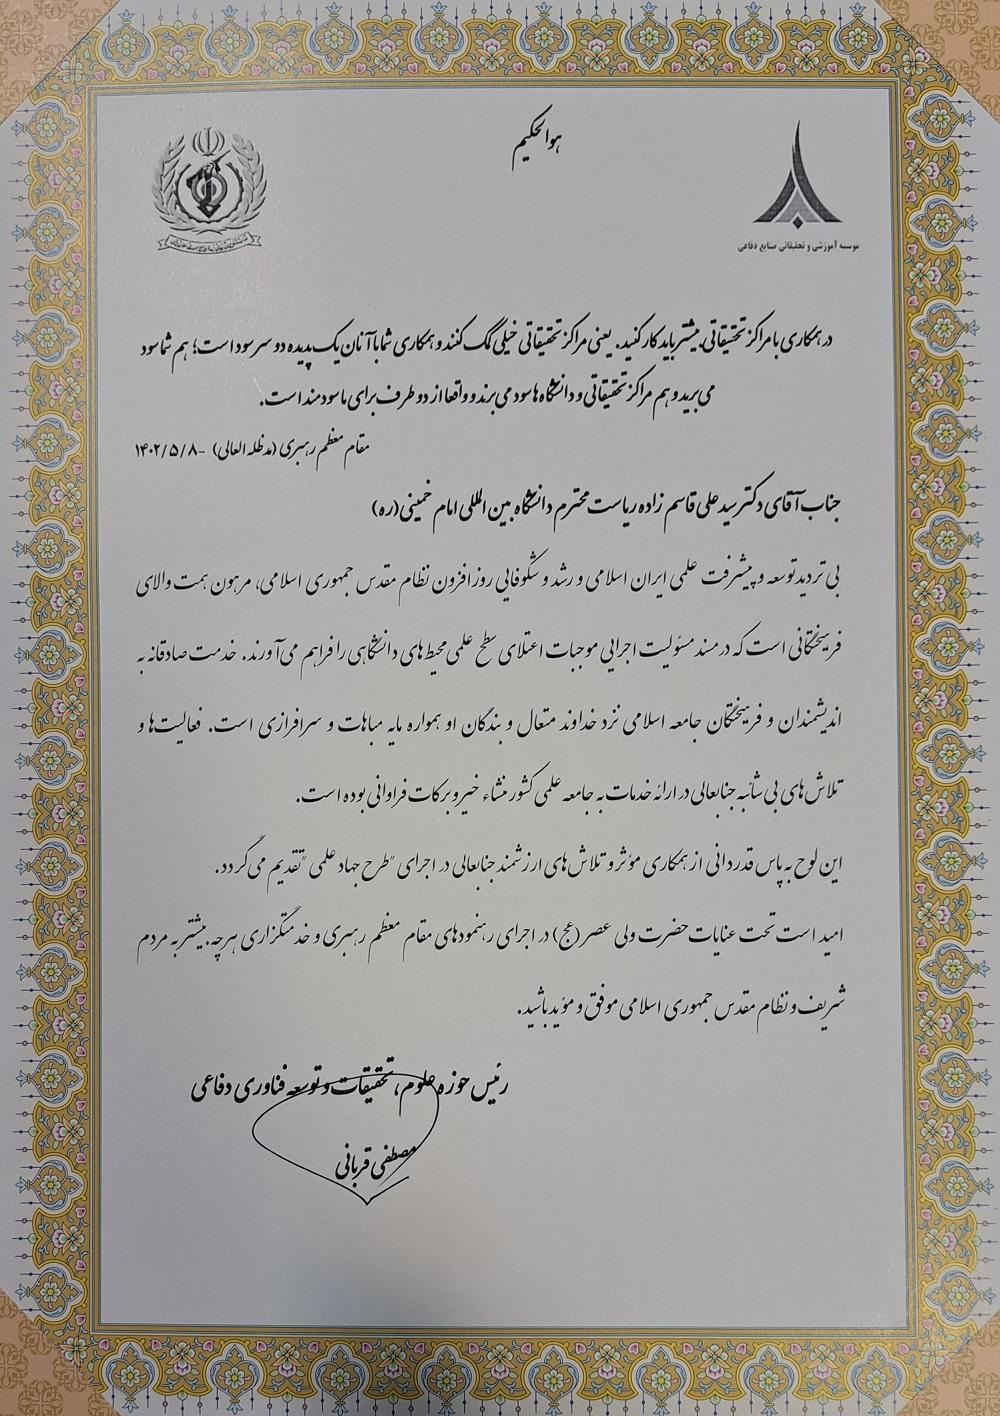 هوالحکیم
موسسه آموزشی و تحقیقاتی صنایع دفاعی
در همکاری با مراکز تحقیقاتی بیشتر باید کار کنید. یعنی مراکز تحقیقاتی خیلی کمک کنند و همکاری شما با آنان یک پدیده دو سر سود است؛ هم شما سود
می برید و هم مراکز تحقیقاتی و دانشگاه ها سود می برند و واقعا از دو طرف برای ما سودمند است.
مقام معظم رهبری (مدظله العالی) -۱۴۰۲/۵/۸
جناب آقای دکتر سید علی قاسم زاده ریاست محترم دانشگاه بین المللی امام خمینی(ره)
بی تردید توسعه و پیشرفت علمی ایران اسلامی و رشد و شکوفایی روزافزون نظام مقدس جمهوری اسلامی، مرهون همت والای
فرهیختگانی است که در مسند مسئولیت اجرایی موجبات اعتلای سطح علمی محیط های دانشگاهی را فراهم می آورند. خدمت صادقانه به
اندیشمندان و فرهیختگان جامعه اسلامی نزد خداوند متعال و بندگان او همواره مایه مباهات و سرافرازی است. فعالیت ها و
تلاش های بی شائبه جنابعالی در ارائه خدمات به جامعه علمی کشور منشاء خیر و برکات فراوانی بوده است.
این لوح به پاس قدردانی از همکاری مؤثر و تلاش های ارزشمند جنابعالی در اجرای "طرح جهاد علمی" تقدیم می گردد.
امید است تحت عنایات حضرت ولی عصر (عج) در اجرای رهنمودهای مقام معظم رهبری و خدمتگزاری هرچه بیشتر به مردم
شریف و نظام مقدس جمهوری اسلامی موفق و مؤید باشید.
رئیس حوزه علوم، تحقیقات و توسعه فناوری دفاعی
مصطفی قربانی